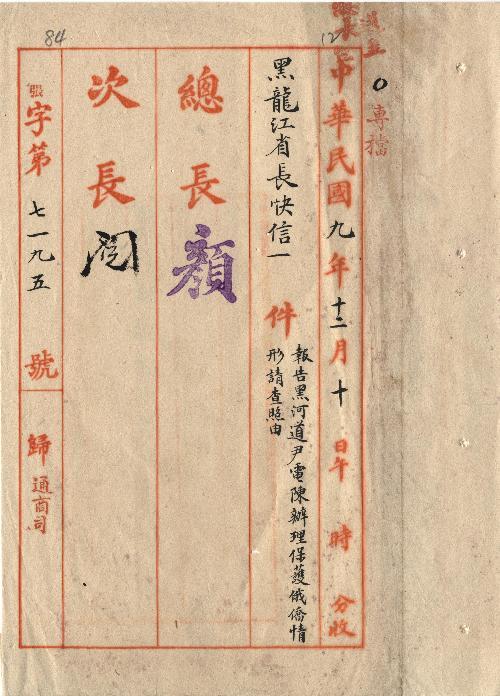 84
12
專檔
中華民國九年十二月十日午 時 分收
黑龍江省長快信一件
報告黑河道尹電陳辦理保護俄僑情
形請查照由
總長
顏
次長
閱
張字第七一九五號
歸通商司